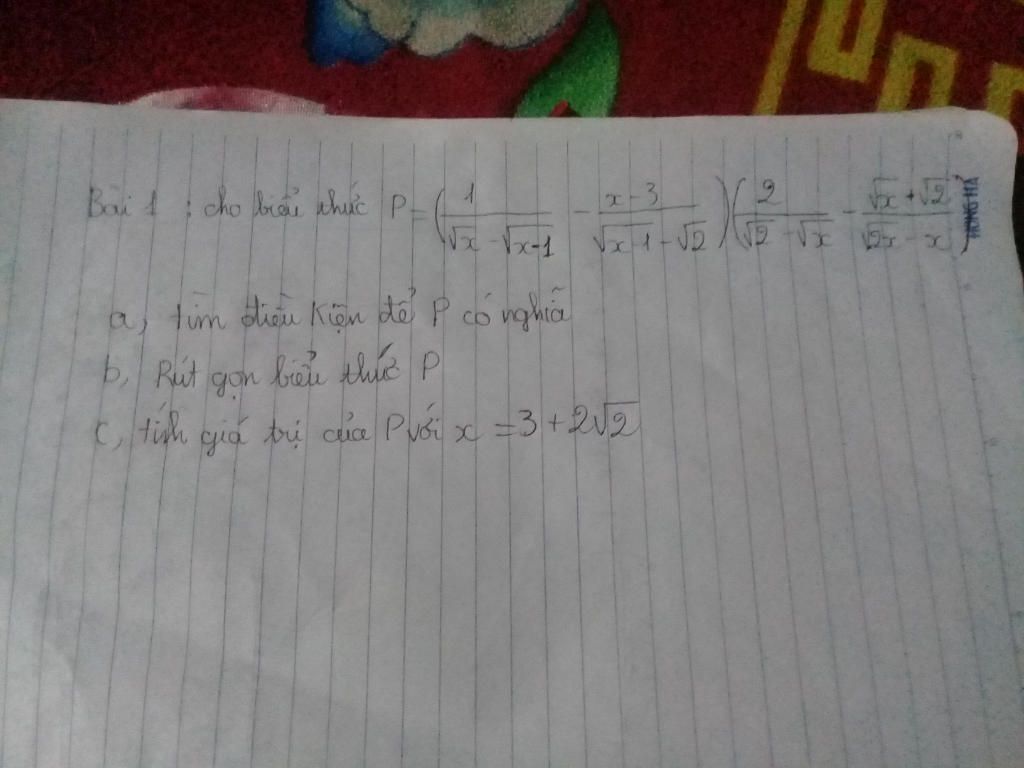 Bài 1 : cho biểu thức P = (1/(√x - √(x-1)) - (x-3)/(√(x-1) - √2)) (2/(√2 - √x) - (√x + √2)/(√(2x) - x))
HỒNG HÀ
a, tìm điều kiện để P có nghĩa
b, Rút gọn biểu thức P
c, tính giá trị của P với x = 3 + 2√2